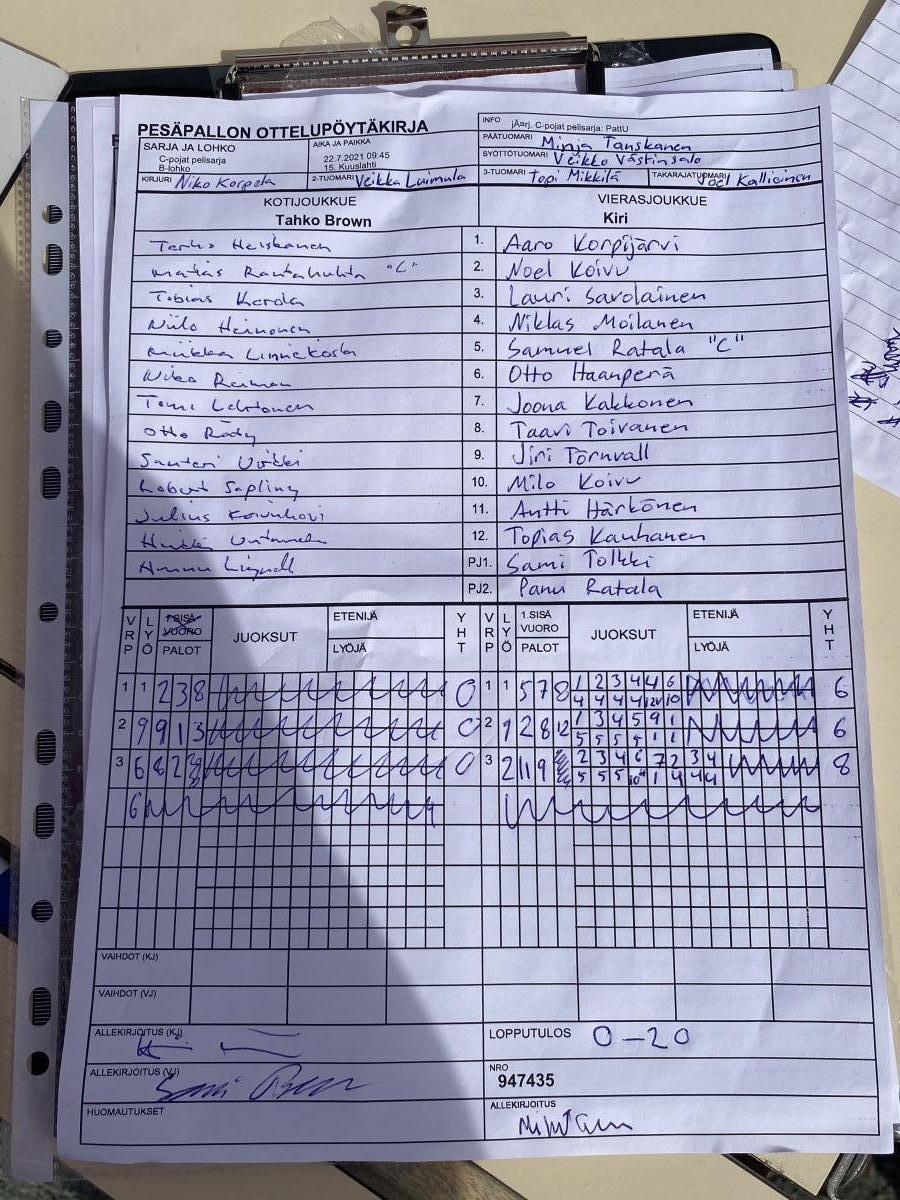 PESÄPALLON OTTELUPÖYTÄKIRJA
INFO jÄ¤rj. C-pojat pelisarja: PattU
SARJA JA LOHKO
C-pojat pelisarja
B-lohko
AIKA JA PAIKKA
22.7.2021 09:45
15. Kuuslahti
PÄÄTUOMARI Minja Tanskanen
SYÖTTÖTUOMARI Veikko Västinsalo
KIRJURI Niko Korpela
2-TUOMARI Veikka Luimula
3-TUOMARI Topi Mikkilä
TAKARAJATUOMARI Joel Kallioinen
KOTIJOUKKUE
Tahko Brown
VIERASJOUKKUE
Kiri
Heiskanen 1. Aaro Korpijärvi
Matias Rantahuhta "C" 2. Noel Koivu
Tobias 3. Lauri Savolainen
Niilo Heinonen 4. Niklas Moilanen
Miikka Linnakoski 5. Samuel Ratala "C"
6. Otto Haanperä
Tomi Lehtonen 7. Joona Kakkonen
Otto Räty 8. Taavi Toivanen
Santeri 9. Jiri Törnvall
10. Milo Koivu
Julius Koivuhovi 11. Antti Härkönen
12. Topias Kauhanen
PJ1. Sami Tolkki
PJ2. Panu Ratala
VRP LYÖ 1.SISÄ VUORO PALOT JUOKSUT ETENIJÄ LYÖJÄ YHT VRP LYÖ 1.SISÄ VUORO PALOT JUOKSUT ETENIJÄ LYÖJÄ YHT
1 1 2 3 8 0 1 1 5 7 8 1 2 3 4 4 6 6
4 4 4 4 12 10
2 9 9 1 3 0 2 9 2 8 12 1 3 4 5 9 1 6
5 5 5 5 1 1
3 6 8 2 0 3 2 11 9 2 3 4 6 7 2 3 4 8
5 5 5 10 1 4 4 4
6
VAIHDOT (KJ)
VAIHDOT (VJ)
ALLEKIRJOITUS (KJ)
LOPPUTULOS 0-20
ALLEKIRJOITUS (VJ)
NRO
947435
HUOMAUTUKSET
ALLEKIRJOITUS